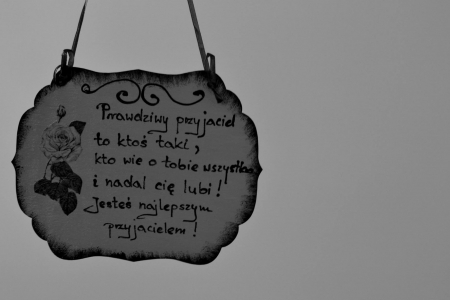 Prawdziwy przyjaciel
to ktoś taki,
kto wie o tobie wszystko
i nadal cię lubi!
Jesteś najlepszym
przyjacielem!